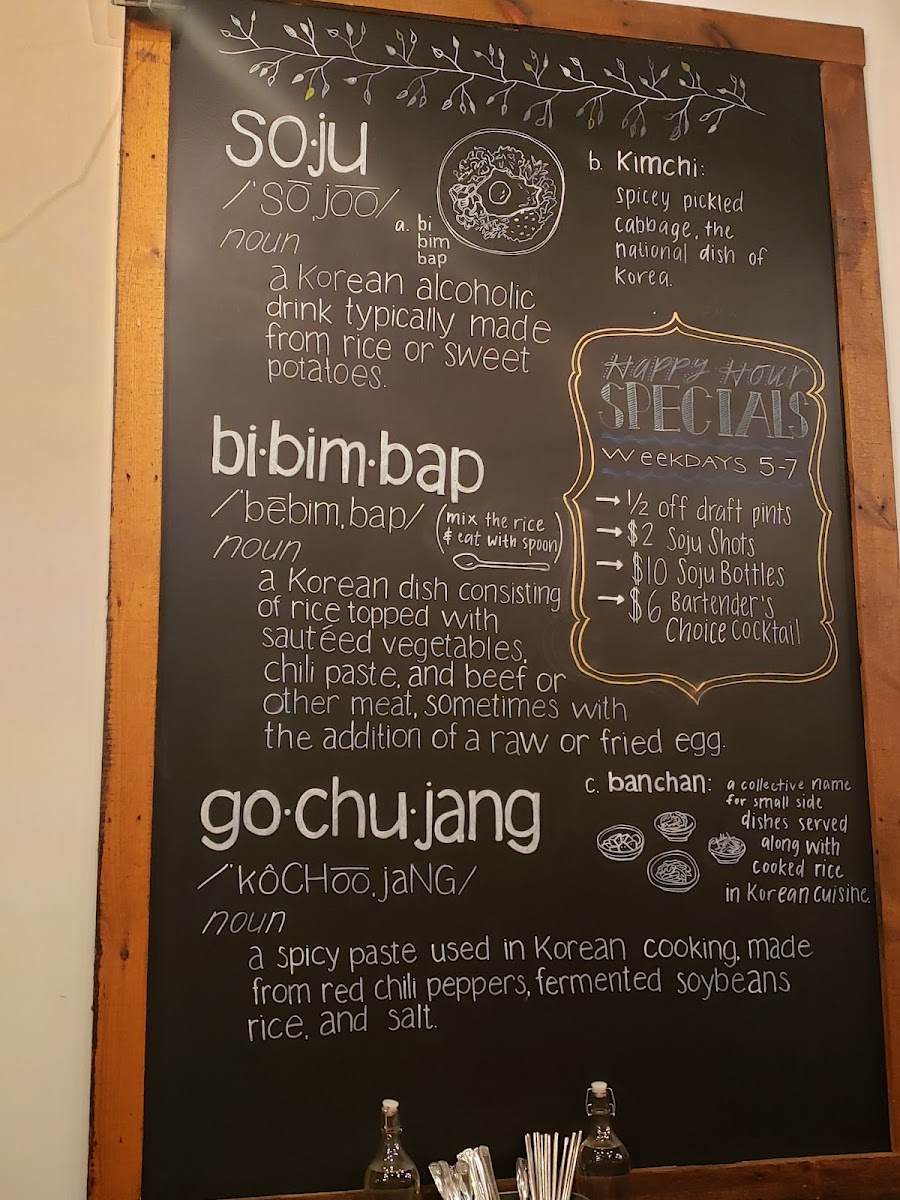 so·ju
/'sō,jōō/
noun
a Korean alcoholic
drink typically made
from rice or sweet
potatoes.
a. bi
bim
bap
b. Kimchi:
spicey pickled
cabbage, the
national dish of
Korea.
Happy Hour
SPECIALS
WEEKDAYS 5-7
→ 1/2 off draft pints
→ $2 Soju Shots
→ $10 Soju Bottles
→ $6 Bartender's
Choice Cocktail
bi·bim·bap
/'bēbim,bap/
(mix the rice
& eat with spoon)
noun
a Korean dish consisting
of rice topped with
sautéed vegetables,
chili paste, and beef or
other meat, sometimes with
the addition of a raw or fried egg.
go·chu·jang
/'kôCHōō,jaNG/
noun
a spicy paste used in Korean cooking, made
from red chili peppers, fermented soybeans
rice, and salt.
c. banchan: a collective name
for small side
dishes served
along with
cooked rice
in Korean cuisine.